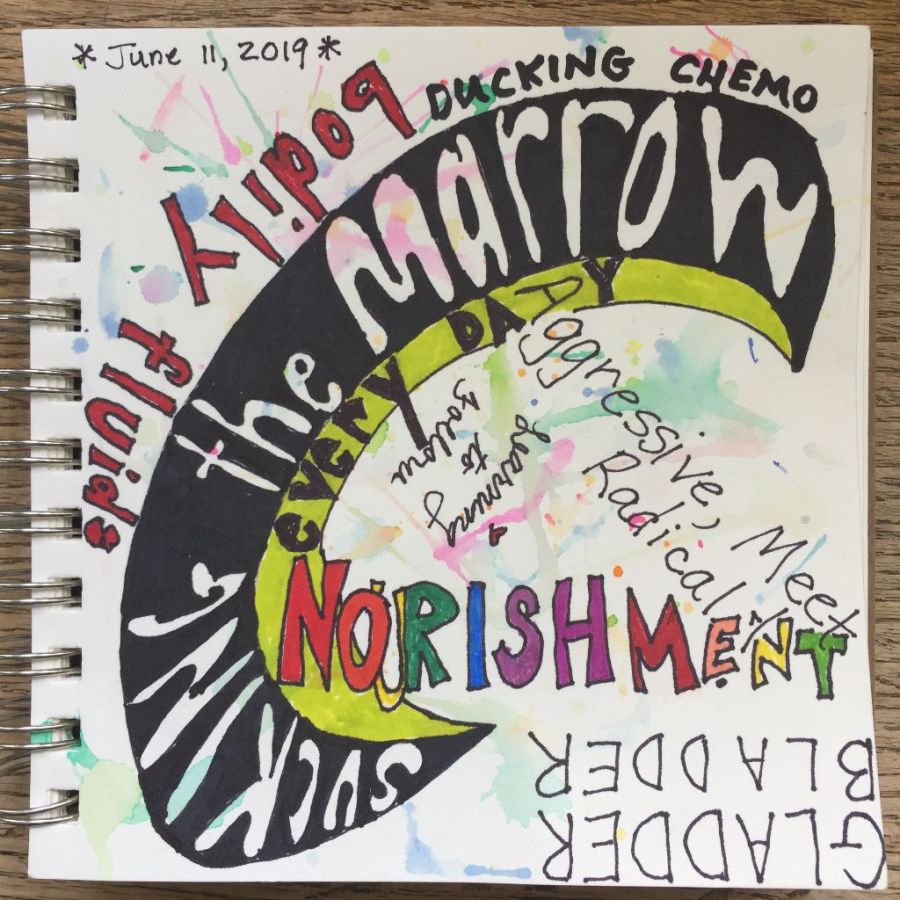 * June 11, 2019 *
DUCKING CHEMO
bodily
fluids
sucking the marrow
every DAY
Aggressive, Meet
Radical
Learning
to
NOURISHMENT
GLADDER
BLADDER